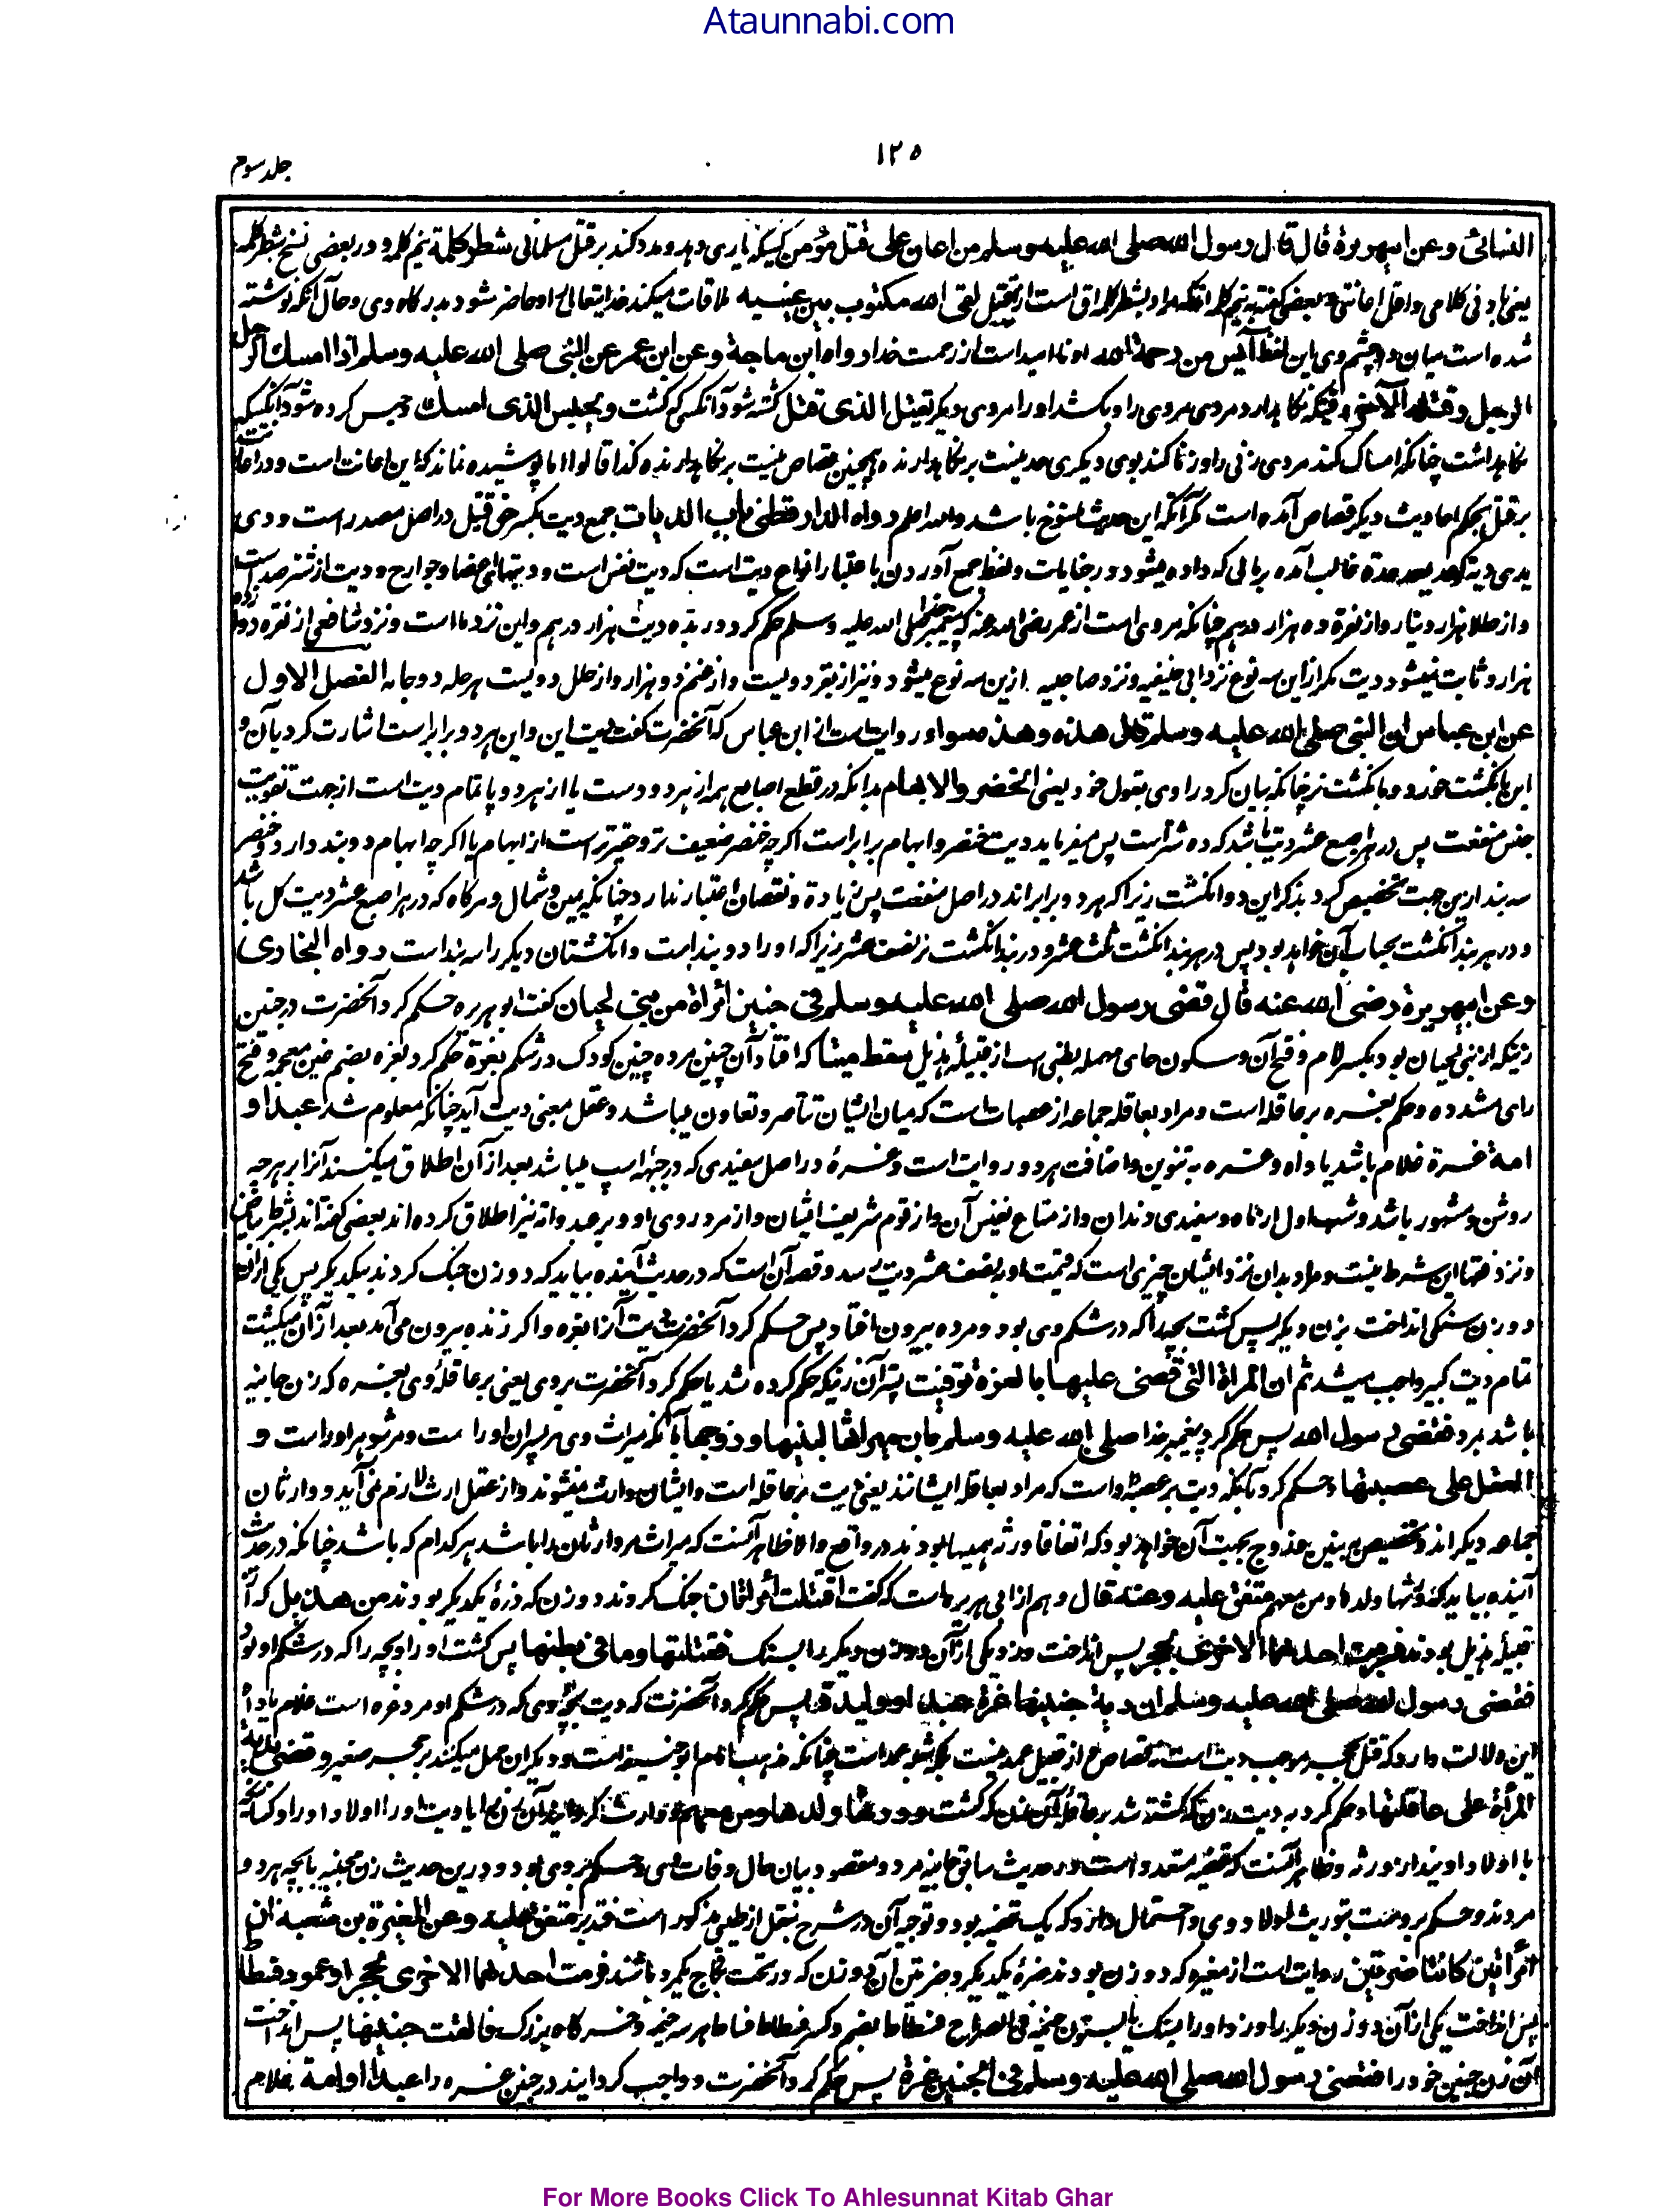 Ataunnabi.com
۱۲۵
جلد سوم
النسائی وعن ابی هریرة قال قال رسول الله صلی الله علیه وسلم من اعان علی قتل مؤمن کسیکه یاری دهد و مدد کند بر قتل مسلمانی بشطر کلمة نیم کلمه و در بعضی نسخ بشطر کلمه
یعنی بادنی کلامی و اقل اعانتی و بعضی گفته نیم کلمه آنکه مراد بشطر کلمه اق است از اقتل لقی الله مکتوب بین عینیه ملاقات میکند خدایتعالی او حاضر شود بدرگاه وی و حال آنکه نوشته
شده است میان دو چشم وی این لفظ آیس من رحمة الله او ناامید است از رحمت خدا رواه ابن ماجة وعن ابن عمر عن النبی صلی الله علیه وسلم اذا امسك الرجل
الرجل وقتله الآخر وقتیکه نگاهدارد مردی مردی را و بکشد او را مردی دیگر یقتل الذی قتل کشته شود آنکس که کشت ویحبس الذی امسك وحبس کرده شود آنکسیکه
نگاهداشت چنانکه امساک کند مردی زنی را و زنا کند بوی دیگری حد نیست بر نگاهدارنده همچنین قصاص نیست بر نگاهدارنده کذا قالوا اما پوشیده نماند که این اعانت است و در اعانت
بر قتل بحکم احادیث دیگر قصاص آمده است مگر آنکه این حدیث منسوخ باشد والله اعلم رواه الدارقطنی باب الدیات جمع دیت بکسر حق قتیل در اصل مصدر است ودی
یدی دیة کوعد یعد عدة غالب آمده بر مالی که داده میشود در جنایات و لفظ جمع آوردن باعتبار انواع دیت است که دیت نفس است و دیتهای اعضا و جوارح و دیت از شتر صد است
و از طلا هزار دینار و از نقره ده هزار درهم چنانکه مروی است از عمر رضی الله عنه که پیغمبر خدا صلی الله علیه وسلم حکم کرد در دیت ده هزار درهم و این نزد ما است و نزد شافعی از نقره دوازده
هزار و ثابت نمیشود دیت مگر ازین سه نوع نزد ابی حنیفه و نزد صاحبیه ازین سه نوع میشود و نیز از بقر دویست و از غنم دو هزار و از حلل دویست هر حله دو جامه الفصل الاول
عن ابن عباس ان النبی صلی الله علیه وسلم قال هذه وهذه سواء روایت است از ابن عباس که آنحضرت گفت دیت این و این هر دو برابر است اشارت کرد بآن و
این بانگشت خورد و بانگشت نر چنانکه بیان کرد راوی بقول خود یعنی الخنصر والابهام بدانکه در قطع اصابع همه از هر دو دست یا از هر دو پا تمام دیت است از جهت تفویت
جنس منفعت پس در هر اصبع عشر دیت باشد که ده شتر است پس میفرماید دیت خنصر و ابهام برابر است اگرچه خنصر ضعیف تر و حقیرتر است از ابهام یا اگرچه ابهام دو بند دارد و خنصر
سه بند ازین جهت تخصیص کرد بذکر این دو انگشت زیرا که هر دو برابر اند در اصل منفعت پس زیادة و نقصان اعتبار ندارد چنانکه یمین و شمال و هرگاه که در هر اصبع عشر دیت کل باشد
و در هر بند انگشت بحساب آن خواهد بود پس در هر بند انگشت ثلث عشر و در بند انگشت نر نصف عشر زیرا که او را دو بند است و انگشتان دیگر را سه بند است رواه البخاری
وعن ابی هریرة رضی الله عنه قال قضی رسول الله صلی الله علیه وسلم فی جنین امرأة من بنی لحیان گفت ابو هریره حکم کرد آنحضرت در جنین
زنیکه از بنی لحیان بود بکسر لام و فتح آن و سکون حای مهمله بطنی است از قبیلۀ هذیل سقط میتا که افتاد آن جنین مرده جنین کودک در شکم بغرة حکم کرد بغره بضم غین معجمه و فتح
رای مشدده و حکم بغره بر عاقله است و مراد بعاقله جماعه از عصبات است که میان ایشان تناصر و تعاون میباشد و عقل بمعنی دیت آید چنانکه معلوم شد عبد او
امة غرة غلام باشد یا داه و غره به تنوین و اضافت هر دو روایت است و غرۀ در اصل سفیدی که در جبهۀ اسپ میباشد بعد از آن اطلاق میکنند آنرا بر هرچه
روشن و مشهور باشد و شبهای اول از ماه و سفیدی دندان و از متاع نفیس آن و از قوم شریف ایشان و از مرد روی او و بر عبد و امة نیز اطلاق کرده اند بعضی گفته اند بشرط بیاض
و نزد فقها این شرط نیست و مراد بدان نزد ایشان چیزی است که قیمت او به نصف عشر دیت رسد و قصه آن است که در حدیث آینده بیاید که دو زن جنگ کردند بیکدیگر پس یکی از آن
دو زن سنگی انداخت بزن دیگر پس کشت بچه را که در شکم وی بود و مرده بیرون افتاد پس حکم کرد آنحضرت دیت آنرا بغره و اگر زنده بیرون می آمد بعد از آن میکشت
تمام دیت کبیر واجب میشد ثم ان المرأة التی قضی علیها بالغرة توفیت پستر آن زنیکه حکم کرده شد یا حکم کرد آنحضرت بروی یعنی بر عاقلۀ وی بغره که زن جانیه
باشد بمرد فقضی رسول الله پس حکم کرد پیغمبر خدا صلی الله علیه وسلم بان میراثها لبنیها وزوجها بآنکه میراث وی مر پسران او را است و مر شوهر او را است و
العقل علی عصبتها و حکم کرد بآنکه دیت بر عصبۀ او است که مراد بعاقله ایشانند یعنی دیت بر عاقله است و ایشان وارث نمیشوند و از عقل ارث لازم نمی آید و وارثان
جماعه دیگر اند و تخصیص به بنین و زوج بجهت آن خواهد بود که اتفاقا ورثه همینها بودند در واقع والا ظاهر آنست که میراث مر وارثان را باشد هر کدام که باشد چنانکه در حدیث
آینده بیاید که ورثها ولدها ومن معهم متفق علیه وعنه قال و هم از ابی هریره است که گفت اقتتلت امرأتان جنگ کردند دو زن که ضرۀ یکدیگر بودند من هذیل که از
قبیلۀ هذیل بودند فرمت احدهما الاخری بحجر پس انداخت و زد یکی از آن دو زن دیگر را بسنگ فقتلتها وما فی بطنها پس کشت او را و بچه را که در شکم او بود
فقضی رسول الله صلی الله علیه وسلم ان دیة جنینها غرة عبد او ولیدة پس حکم کرد آنحضرت که دیت بچۀ وی که در شکم او مرد غره است غلام یا داه
این دلالت دارد که قتل بحجر موجب دیت است نه قصاص و از قبیل عمد نیست بلکه شبه عمد است چنانکه مذهب امام ابو حنیفه است و دیگران حمل میکنند بر حجر صغیر وقضی بدیة
المرأة علی عاقلتها و حکم کرد به دیت زن که کشته شد بر عاقلۀ آن زن که کشت وورثها ولدها ومن معهم و وارث گردانید آن زن را یا دیت او را اولاد او را و کسانیکه
با اولاد اویند از ورثه و ظاهر آنست که قضیه متعدد است و در حدیث سابق جانیه مرد و مقصود بیان حال وفات وی و حکم بروی بود و درین حدیث زن مجنیه با بچه هر دو
مردند و حکم بر دیت بتوریث اولاد وی و احتمال دارد که یک قضیه بود و توجیه آن در شرح بنقل از طیبی مذکور است فتدبر متفق علیه وعن المغیرة بن شعبة ان
امرأتین کانتا ضرتین روایت است از مغیره که دو زن بودند ضرۀ یکدیگر و ضرتین آن دو زن که در تحت نکاح یکمرد باشند فرمت احدهما الاخری بحجر او عمود فسطاط
پس انداخت یکی از آن دو زن دیگر را و زد او را بسنگ یا بستون خیمه فی الصراح فسطاط بضم و کسر فسطاط فساط هر سه خیمه و خرگاه بزرگ فالقت جنینها پس انداخت
آن زن جنین خود را فقضی رسول الله صلی الله علیه وسلم فی الجنین غرة پس حکم کرد آنحضرت و واجب گردانید در جنین غره را عبدا او امة غلام
For More Books Click To Ahlesunnat Kitab Ghar